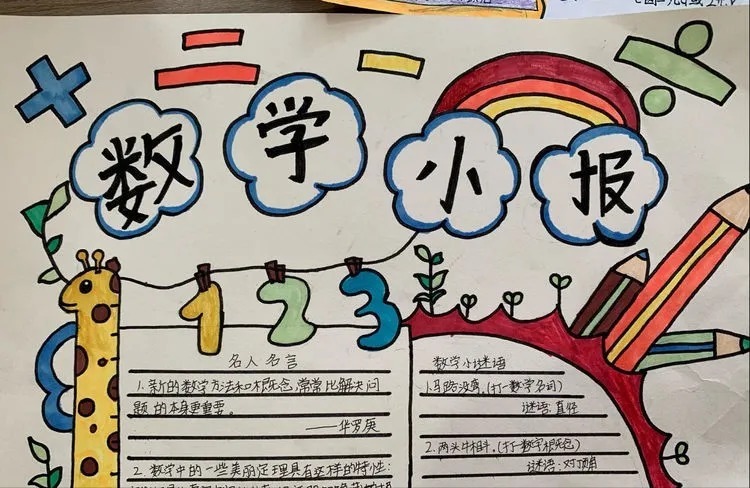 数学小报
1 2 3
名人名言
1.新的数学方法和概念,常常比解决问
题的本身更重要。
——华罗庚
2.数学中的一些美丽定理具有这样的特性:
数学小谜语
1.马路没弯。(打一数学名词)
谜语:直径
2.两头牛相斗。(打一数学概念)
谜语:对顶角